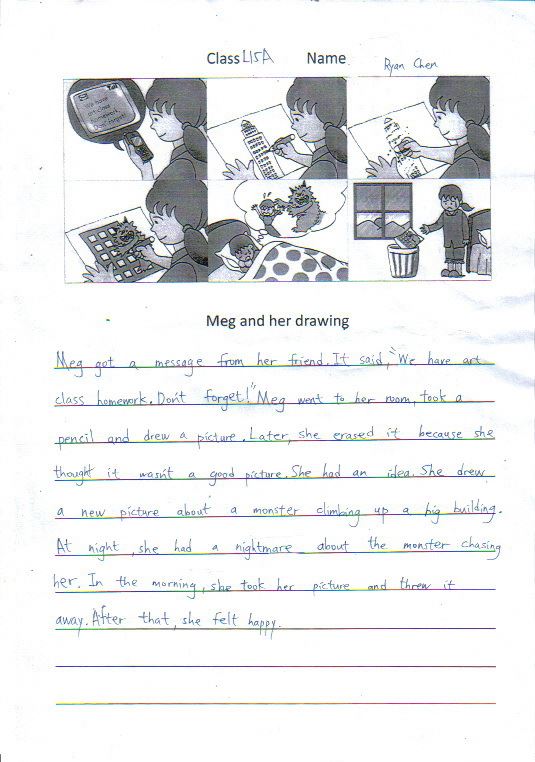 Class LISA Name Ryan Chen
We have
art class
homework.
Don't forget!
Meg and her drawing
Meg got a message from her friend. It said, "We have art
class homework. Don't forget!" Meg went to her room, took a
pencil and drew a picture. Later, she erased it because she
thought it wasn't a good picture. She had an idea. She drew
a new picture about a monster climbing up a big building.
At night, she had a nightmare about the monster chasing
her. In the morning, she took her picture and threw it
away. After that, she felt happy.